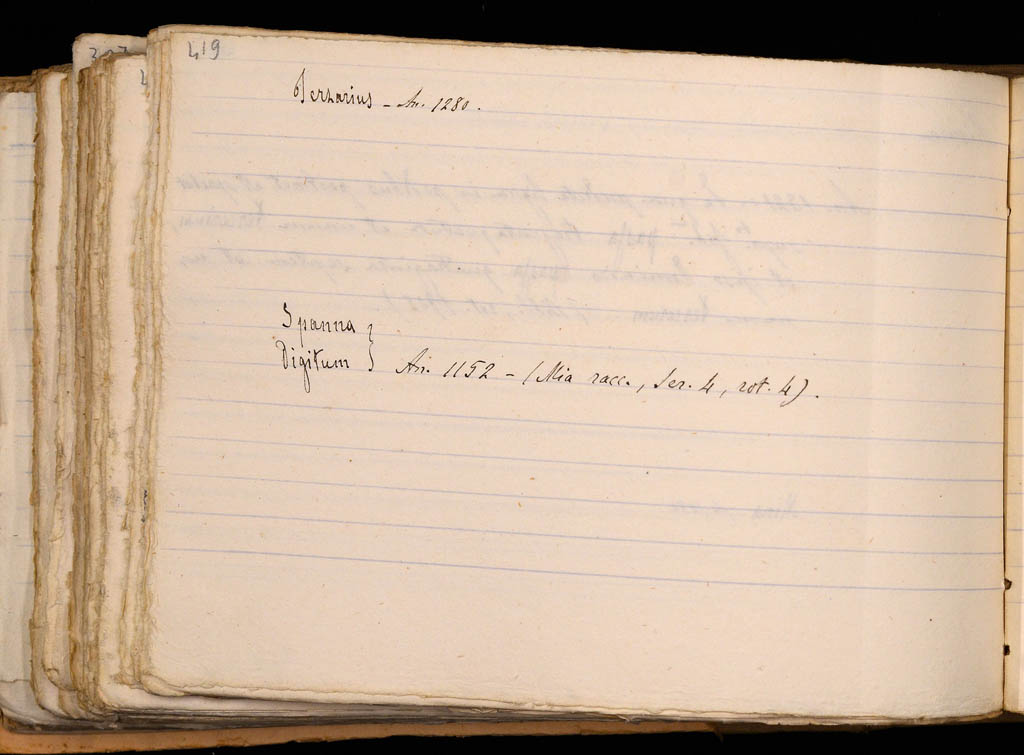 419
Terzarius - An. 1280.
Spanna }
Digitum } An. 1152 - (Mia racc., Ser. 4, rot. 4).